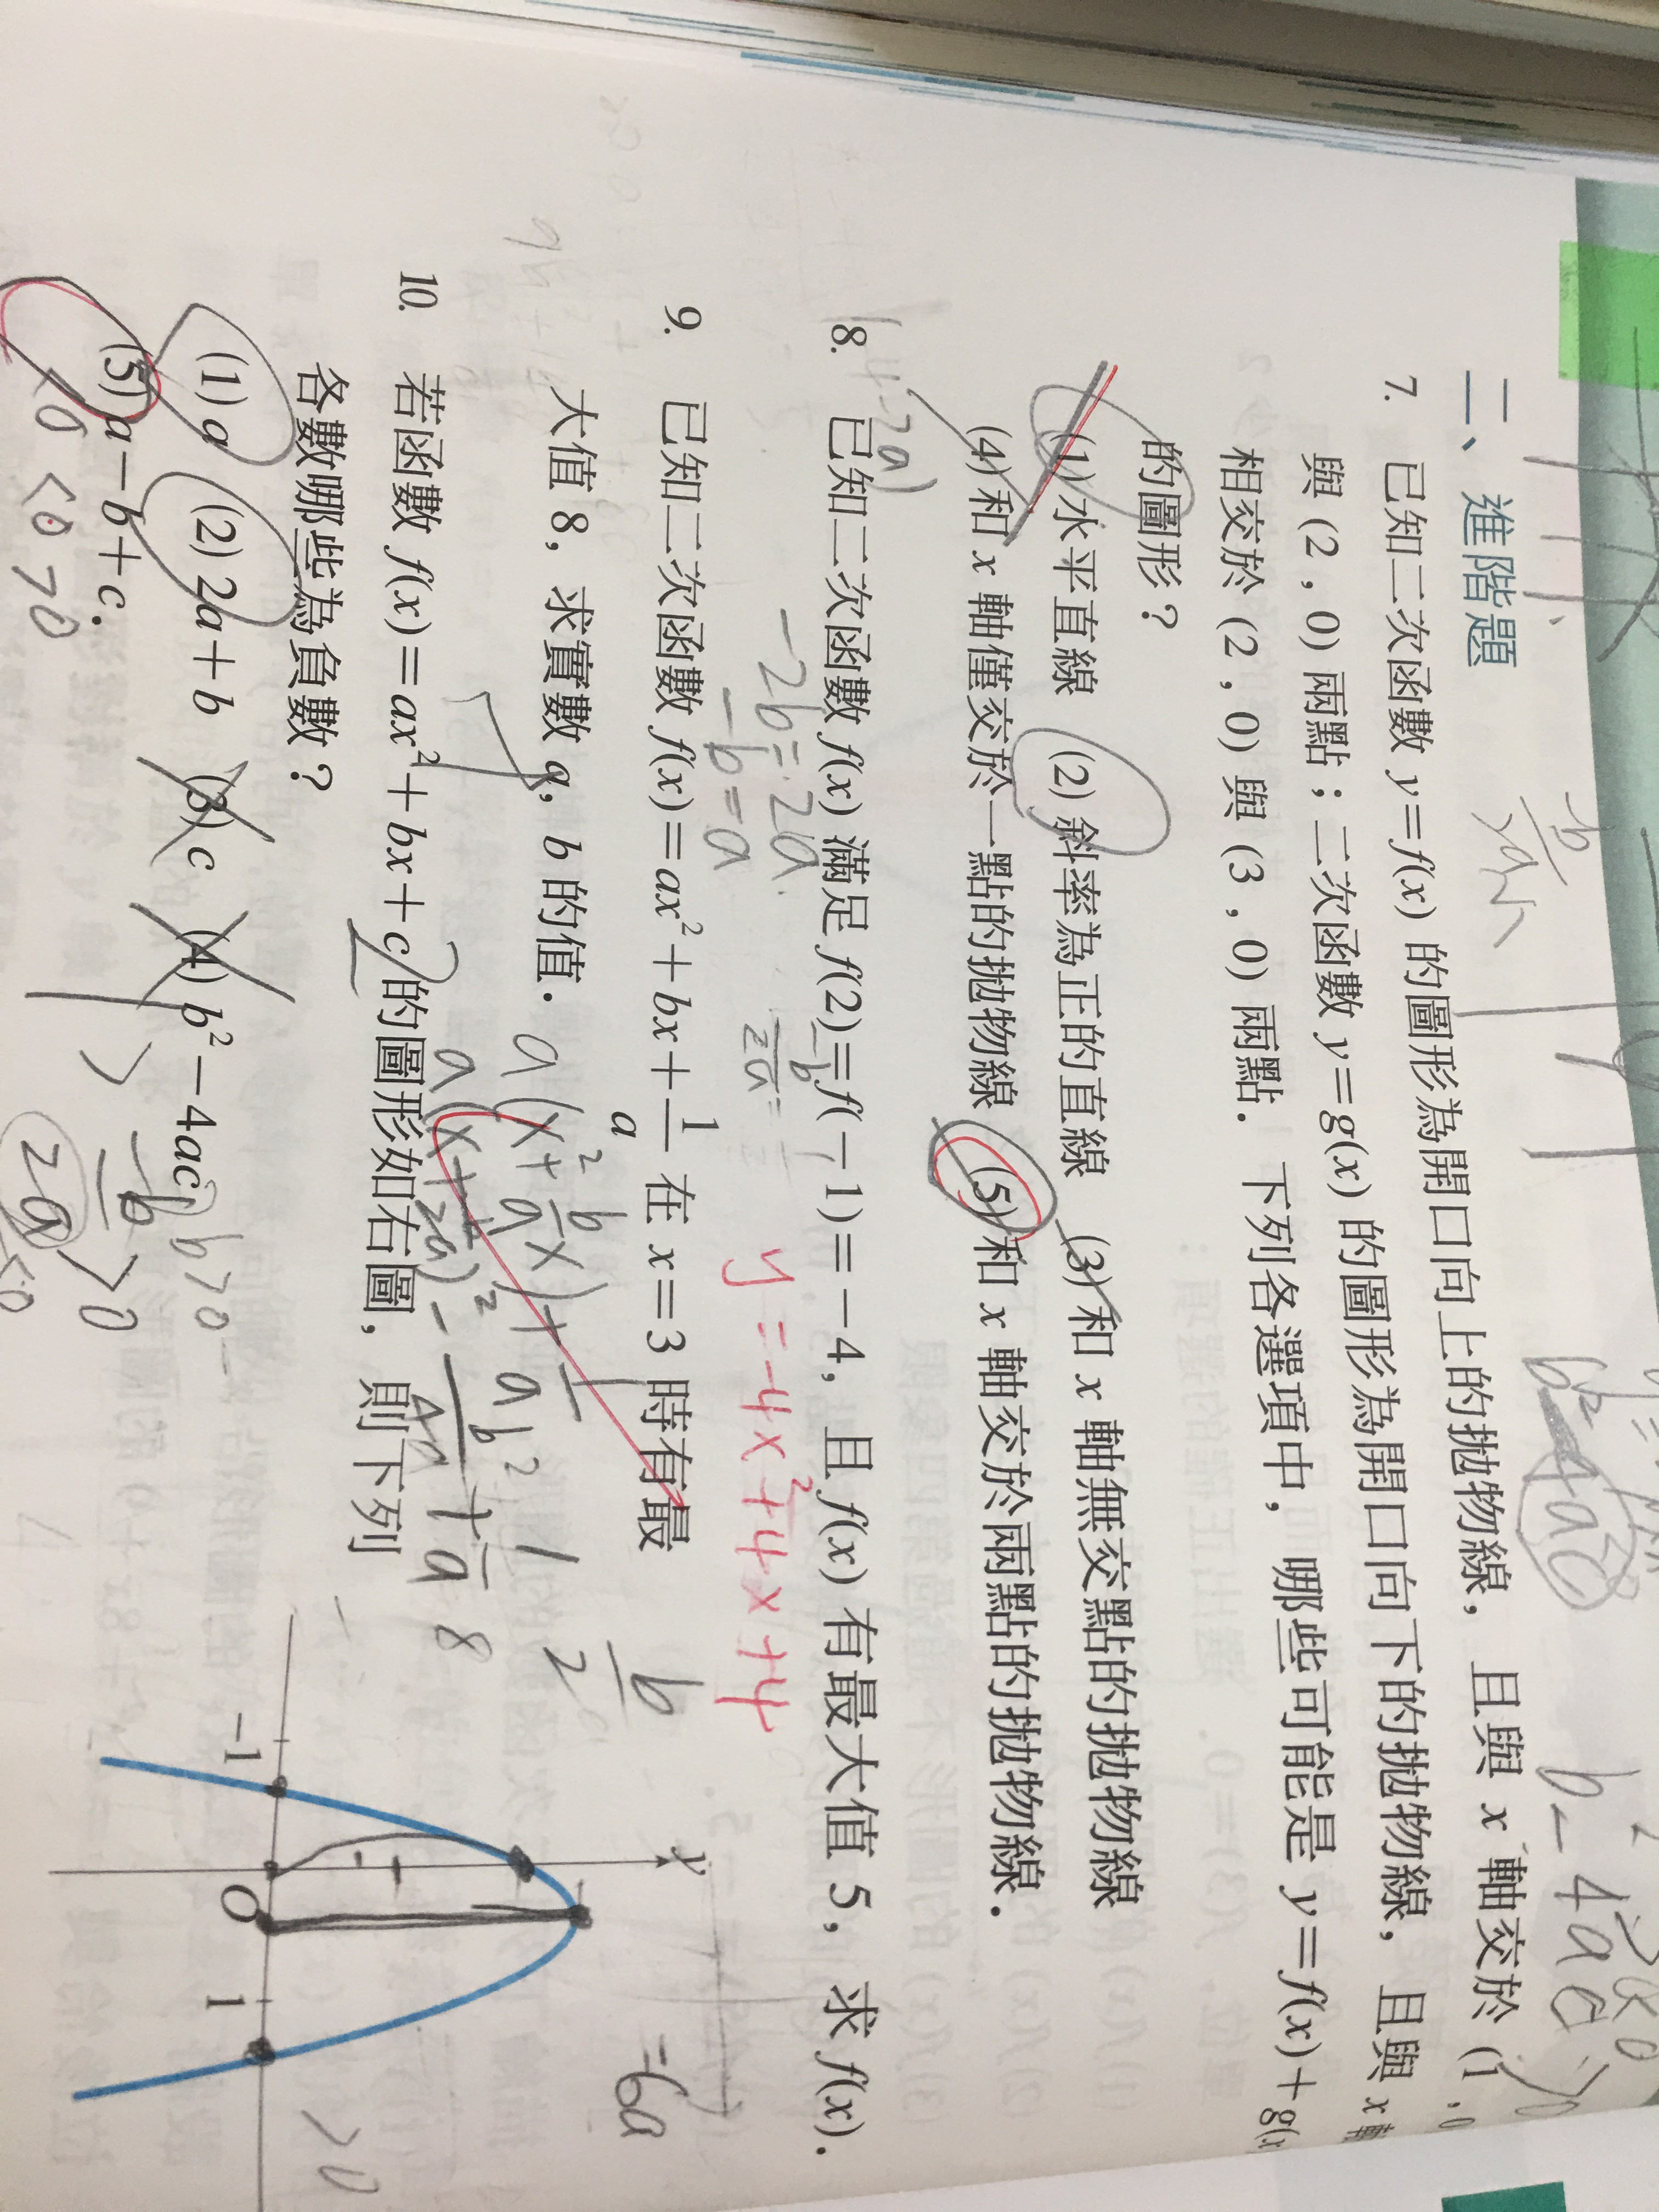 二、進階題
7. 已知二次函數 y=f(x) 的圖形為開口向上的拋物線，且與 x 軸交於 (1,0)
與 (2,0) 兩點；二次函數 y=g(x) 的圖形為開口向下的拋物線，且與 x 軸
相交於 (2,0) 與 (3,0) 兩點．下列各選項中，哪些可能是 y=f(x)+g(x
的圖形？
(1) 水平直線 (2) 斜率為正的直線 (3) 和 x 軸無交點的拋物線
(4) 和 x 軸僅交於一點的拋物線 (5) 和 x 軸交於兩點的拋物線．
8. 已知二次函數 f(x) 滿足 f(2)=f(-1)=-4，且 f(x) 有最大值 5，求 f(x)．
-2b=2a
-b=a
y=-4x²+4x+4
9. 已知二次函數 f(x)=ax²+bx+1/a 在 x=3 時有最
大值 8，求實數 a，b 的值．
=6a
10. 若函數 f(x)=ax²+bx+c 的圖形如右圖，則下列
各數哪些為負數？
(1) a (2) 2a+b (3) c (4) b²-4ac
b>0
(5) a-b+c．
<0 <0 >0
y
-1 O 1
>0